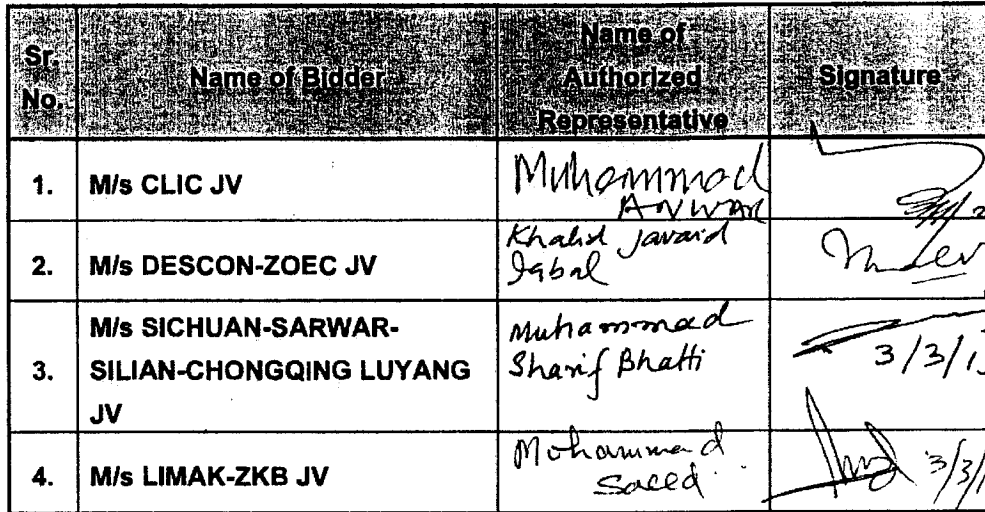 Sr. No.
Name of Bidder
Name of
Authorized
Representative
Signature
1.
M/s CLIC JV
Muhammad
ANWAR
2.
M/s DESCON-ZOEC JV
Khalid Javaid
Iqbal
3.
M/s SICHUAN-SARWAR-
SILIAN-CHONGQING LUYANG
JV
Muhammad
Sharif Bhatti
3/3/1
4.
M/s LIMAK-ZKB JV
Mohammad
Saeed
3/3/1